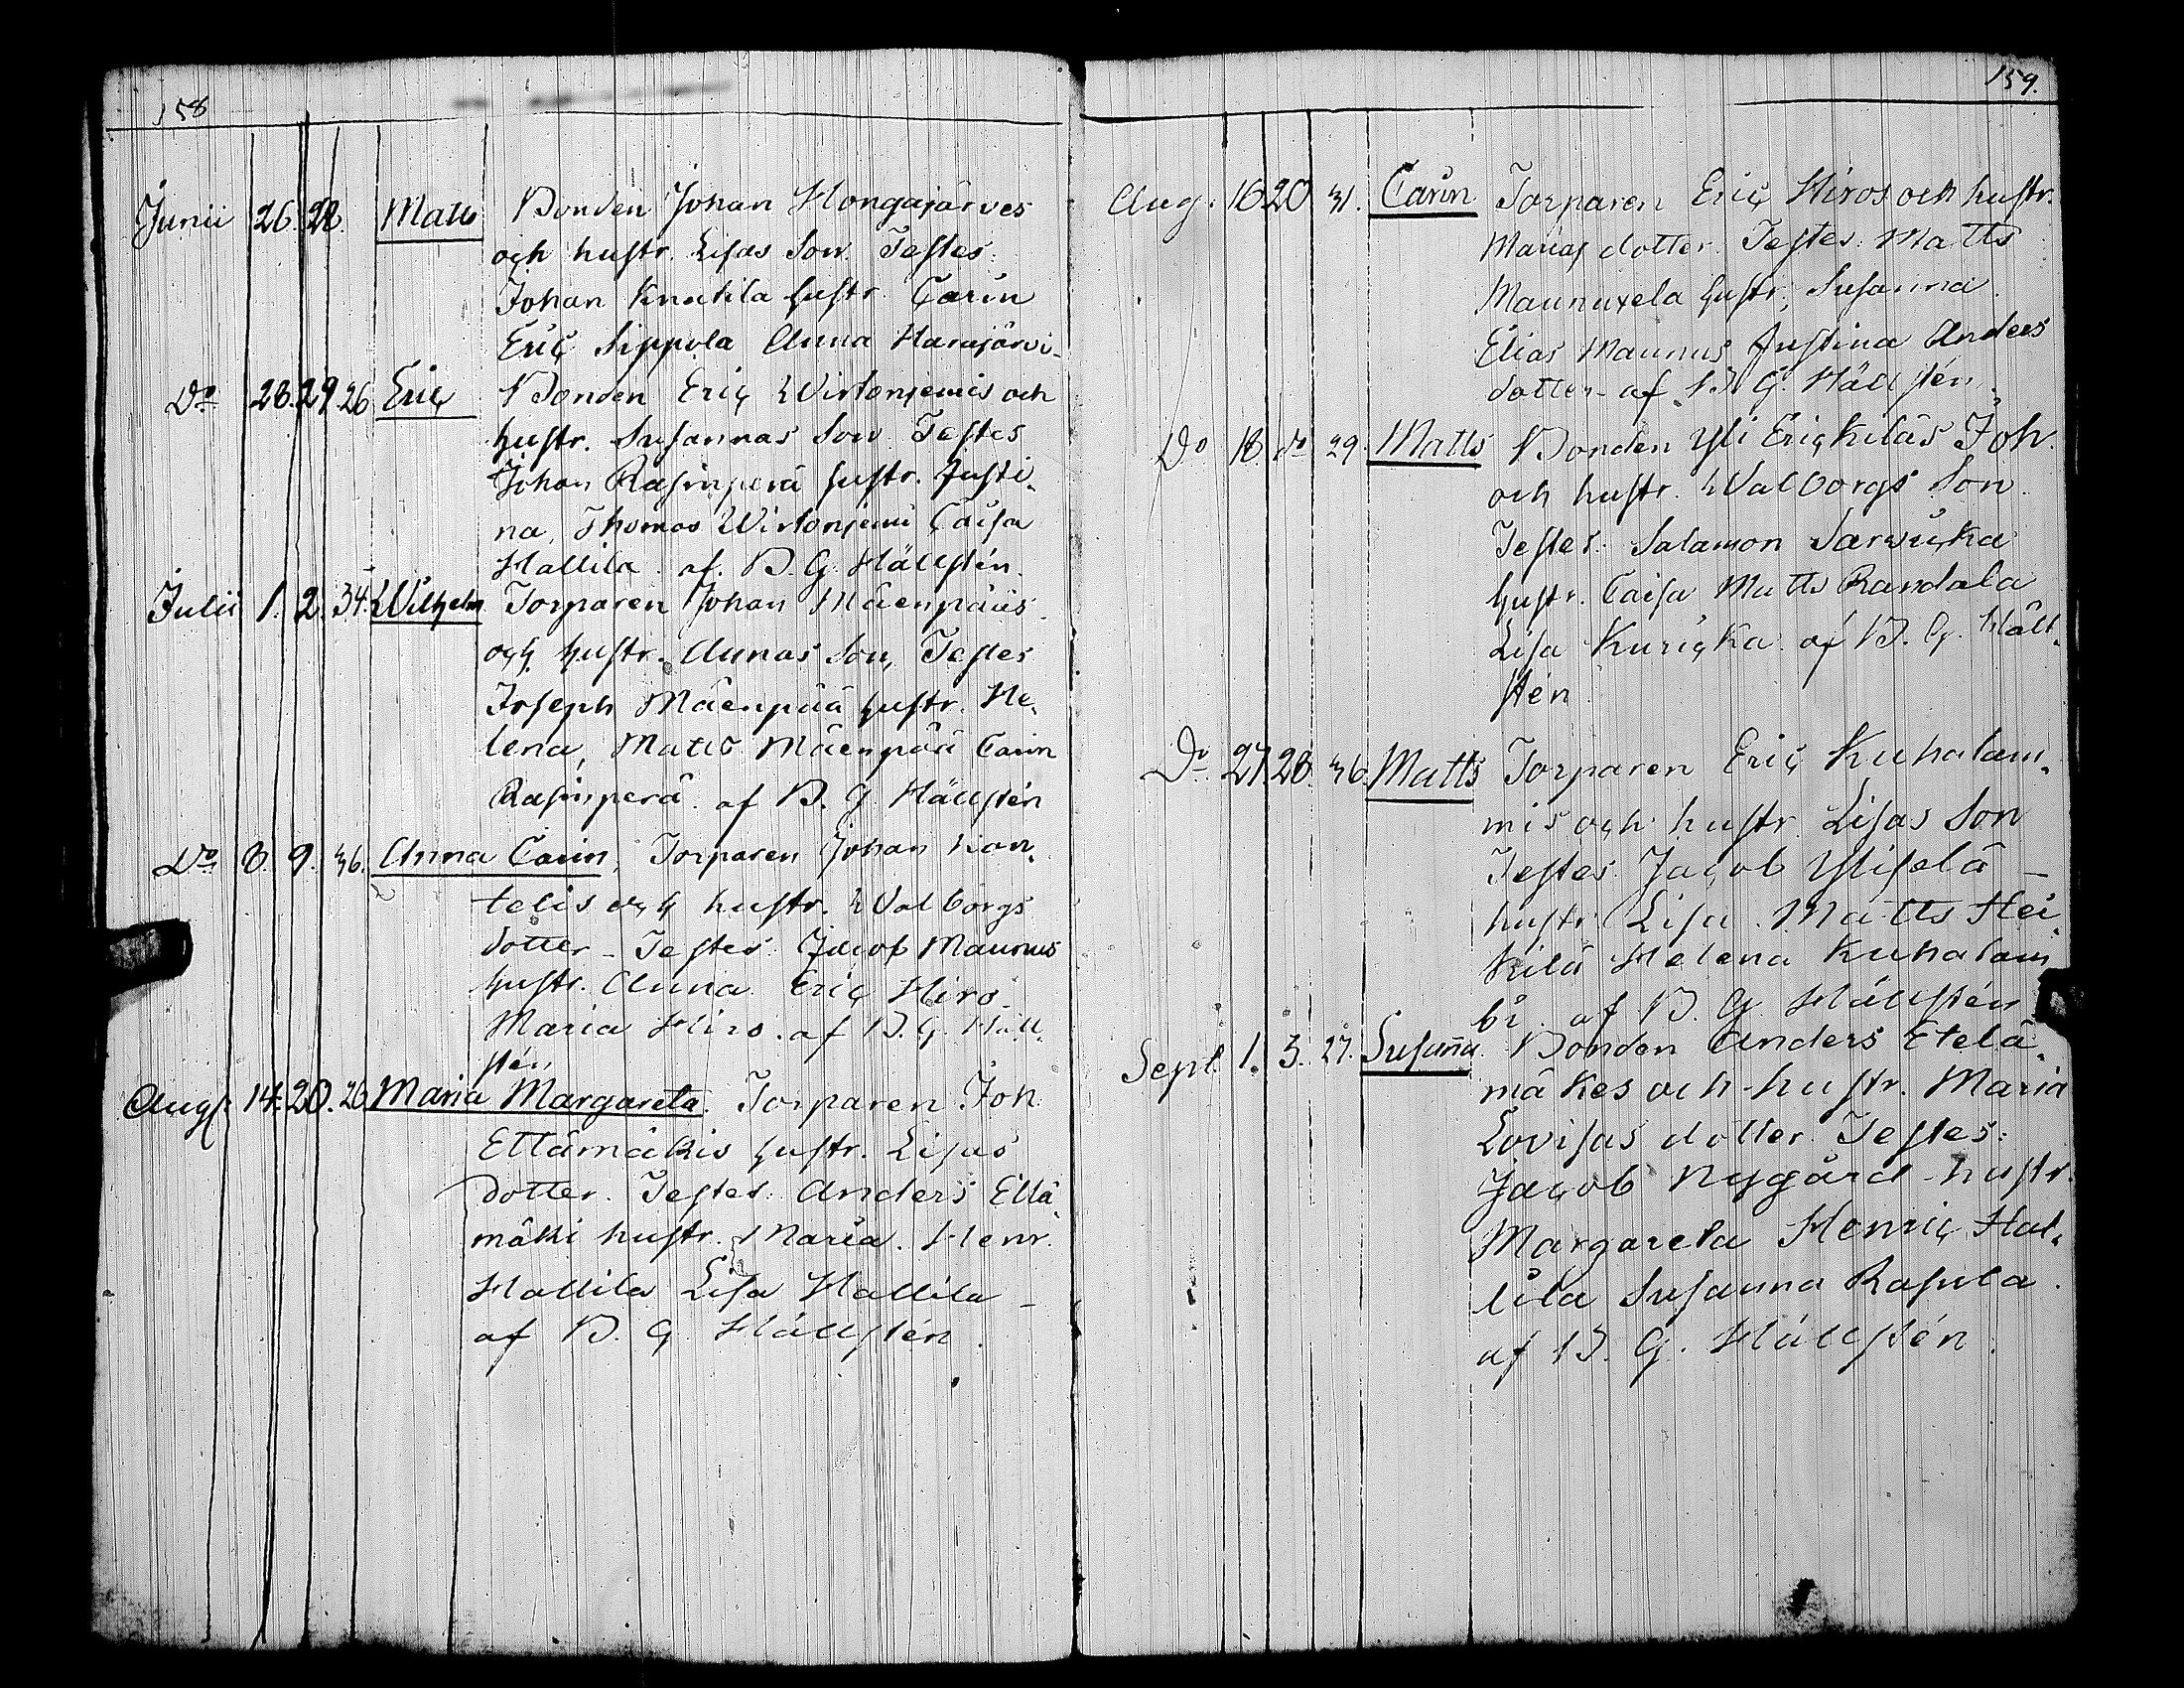 158
Junii 26. 28. Matts Bonden Johan Hongajärves
och hustr. Lisas Son. Testes.
Johan Knutila hustr. Carin
Eric Sippola Anna Harajärvi
Do 28. 29. 26 Eric Bonden Eric Wirtonjemis och
hustr. Susannas Son Testes
Johan Rasinperä hustr. Justi-
na, Thomas Wirtonjemi Caisa
Hallila. af. B. G. Hällstén.
Julii 1. 2. 34. Wilhelm Torparen Johan Mäenpääs
och hustr. Annas Son, Testes
Joseph Mäenpää hustr. He-
lena, Matts Mäenpää Carin
Rasinperä. af B. G. Hällstén
Do 8. 9. 36. Anna Carin, Torparen Johan Kon-
telis och hustr. Walborgs
dotter - Testes Jacob Maunus
hustr. Anna Eric Hiro-
Maria Hiro. af B. G. Häll-
stén
Augs. 14. 20. 26 Maria Margareta. Torparen Joh.
Ettämäkis hustr. Lisas
dotter. Testes. Anders Että-
mäki hustr. Maria. Henr.
Hallila Lisa Hallila -
af B. G. Hällstén.
159.
Aug. 16 20 31. Carin Torparen Eric Hiros och hustr.
Marias dotter. Testes. Matts
Maunuxela hustr, Susanna.
Elias Maunus Justina Anders
dotter - af B. G. Hällstén.
Do 18. do 29. Matts Bonden Yli Erickiläs Joh.
och hustr. Walborgs Son.
Testes. Salamon Sarvicka
hustr. Caisa Matts Randala
Lisa Kuricka. af B. G. Häll-
stén
Do 27. 28. 36. Matts Torparen Eric Kuhalam-
mis och hustr. Lisas Son
Testes. Jacob Yliselä -
hustr Lisa. Matts Hei-
kilä Helena Kuhalam
bi. af B. G. Hällstén
Sept. 1. 3. 27. Susan̄a Bonden Anders Etelä-
mäkes och hustr. Maria
Lovisas dotter. Testes:
Jacob Nygård - hustr.
Margareta Henric Hal-
lila Susanna Rasula.
af B. G. Hällstén.